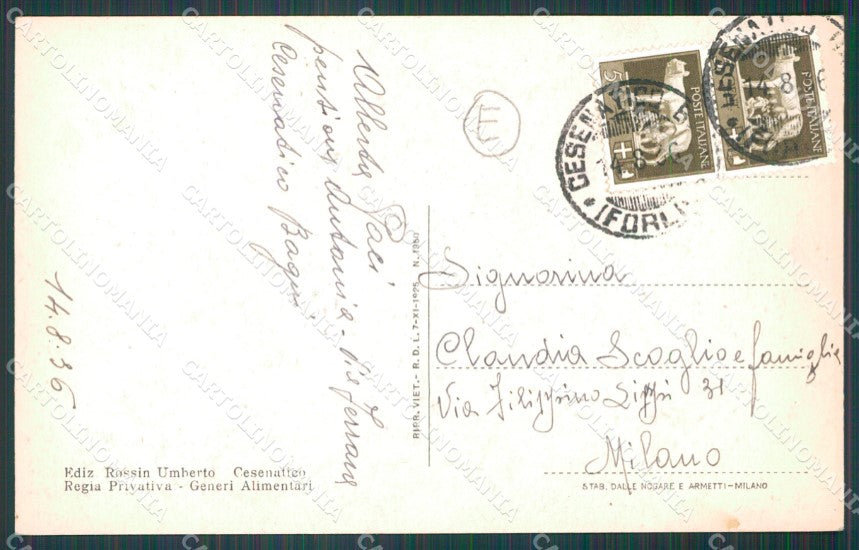 Alberta Paci
pensione Antonia - Via Ferrara
Cesenatico Bagni
14.8.36
Ediz Rossin Umberto Cesenatico
Regia Privativa - Generi Alimentari
RIPR. VIET. - R. D. L. 7-XI-1925 N. 1950
POSTE ITALIANE
POSTE ITALIANE
CESENATICO
14.8.36
(FORLI)
CESENATICO
14.8
Signorina
Claudia Scaglio e famiglia
Via Filippino Lippi 31
Milano
STAB. DALLE NOGARE E ARMETTI-MILANO
CARTOLINOMANIA